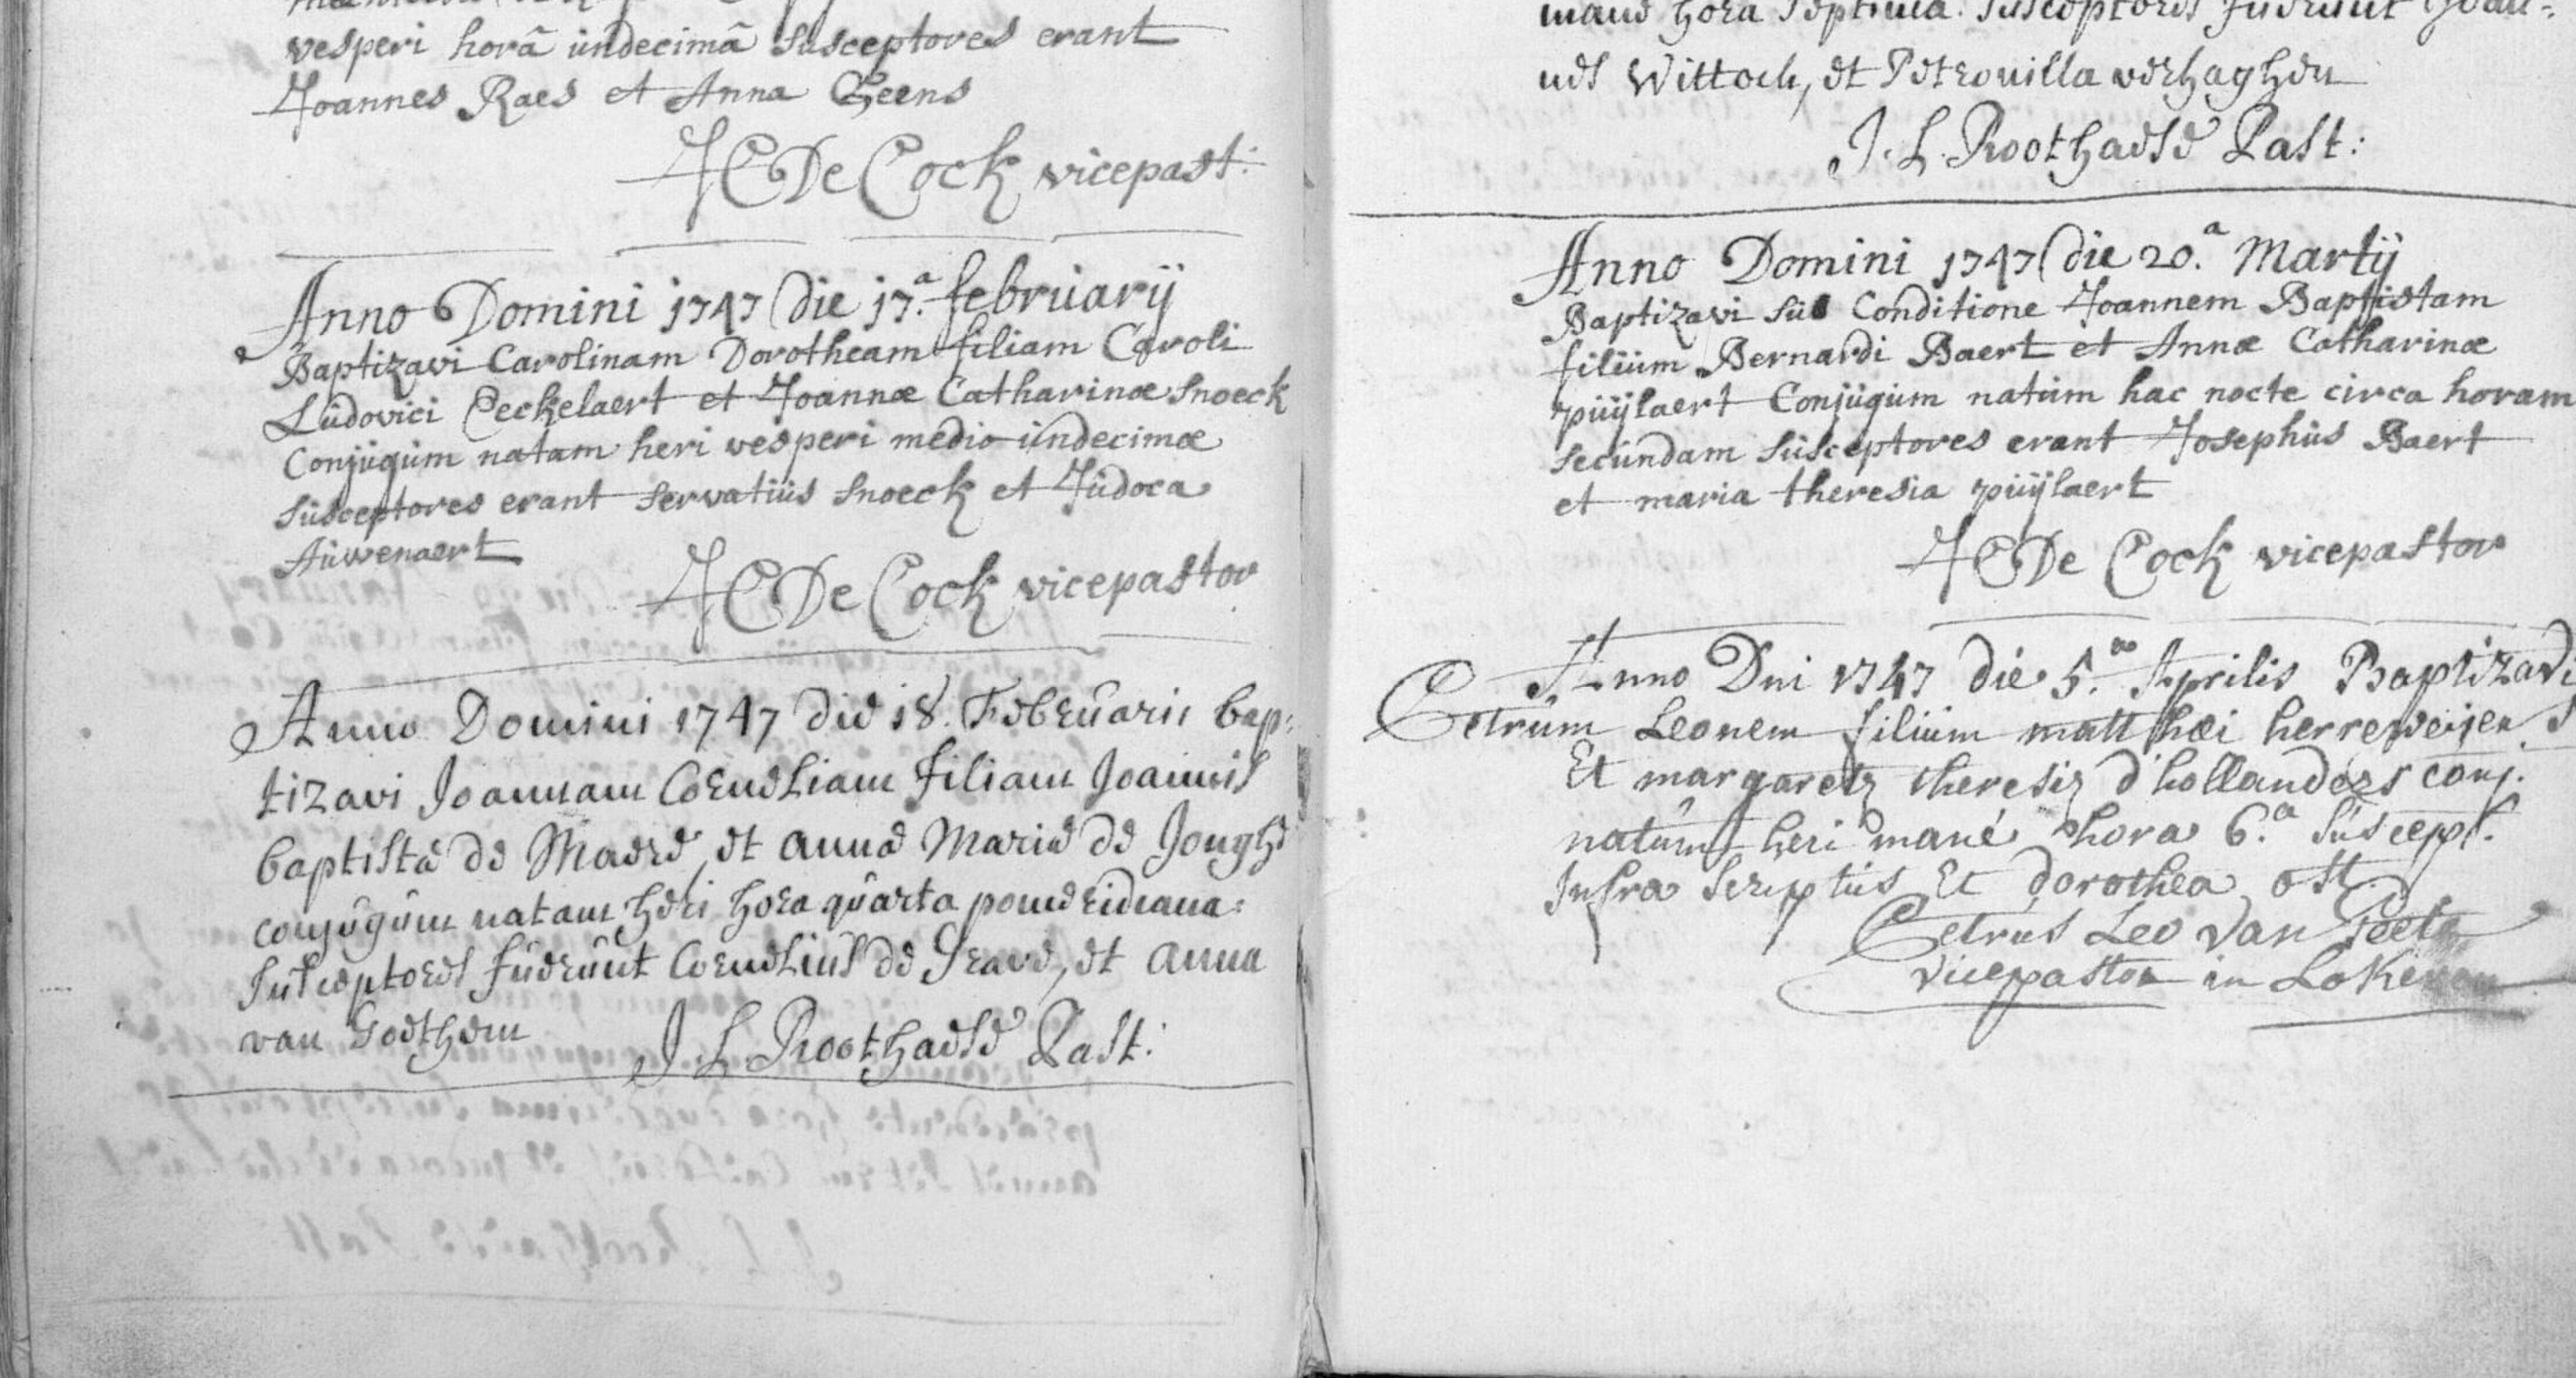 vesperi horâ undecimâ susceptores erant
Joannes Raes et Anna Geens
JC De Cock vicepast:
Anno Domini 1747 die 17.a februarij
Baptizavi Carolinam Dorotheam filiam Caroli
Ludovici Peckelaert et Joannæ Catharinæ Snoeck
Conjugum natam heri vesperi medio undecimæ
susceptores erant servatius Snoeck et Judoca
Auwenaert
JC De Cock vicepastor
Anno Domini 1747 die 18. Februarii bap:
tizavi Joannam Corneliam filiam Joannis
baptistæ de Maere, et annæ Mariæ de Jonghe
conjugum natam heri hora quarta pomeridiana:
susceptores fuerunt Cornelius de Grave, et anna
van Goethem
J. L. Roothaese Past:
mane hora septima. susceptores fuerunt Joan:
nes Wittock, et Petronilla verhaghen
J. L. Roothaese Past:
Anno Domini 1747 die 20.a Martij
Baptizavi sub Conditione Joannem Baptistam
filium Bernardi Baert et Annæ Catharinæ
puijlaert Conjugum natum hac nocte circa horam
secundam susceptores erant Josephus Baert
et maria theresia puijlaert
JC De Cock vicepastor
Anno Dni 1747 die 5.a Aprilis Baptizavi
Petrum Leonem filium matthæi herreweijen
Et margaretæ theresiæ d'hollanders conj.
natum heri mané hora 6.a suscept.
Infra scriptus Et dorothea ott
Petrus Leo van Peete
vicepastor in Lokeren